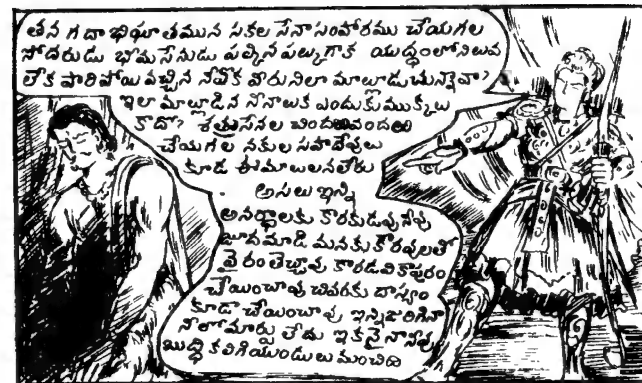 తన గదాభిఘాతమున సకల సేనాసంహారము చేయగల
సోదరుడు భీమసేనుడు పల్కిన పల్కుగాక యుద్ధంలోనిలువ
లేక పారిపోయి వచ్చిన నీవొక వీరునిలా మాట్లాడుచున్నావా?
ఇలా మాట్లాడిన నీనాలుక ఎందుకుముక్కలు
కాదో? శత్రుసేనల చిందరవందర
చేయగల నకుల సహదేవులు
కూడ ఈమాటలనలేరు
అసలు ఇన్ని
అనర్థాలకు కారకుడవునీవు
జూదమాడి మనకుకౌరవులతో
వైరంతెచ్చావు కారడవికాపురం
చేయించావు చివరకు దాస్యం
కూడా చేయించావు ఇన్నిజరిగినా
నీలోమార్పు లేదు ఇకనైనానీవు
బుద్ధి కలిగియుండుట మంచిది